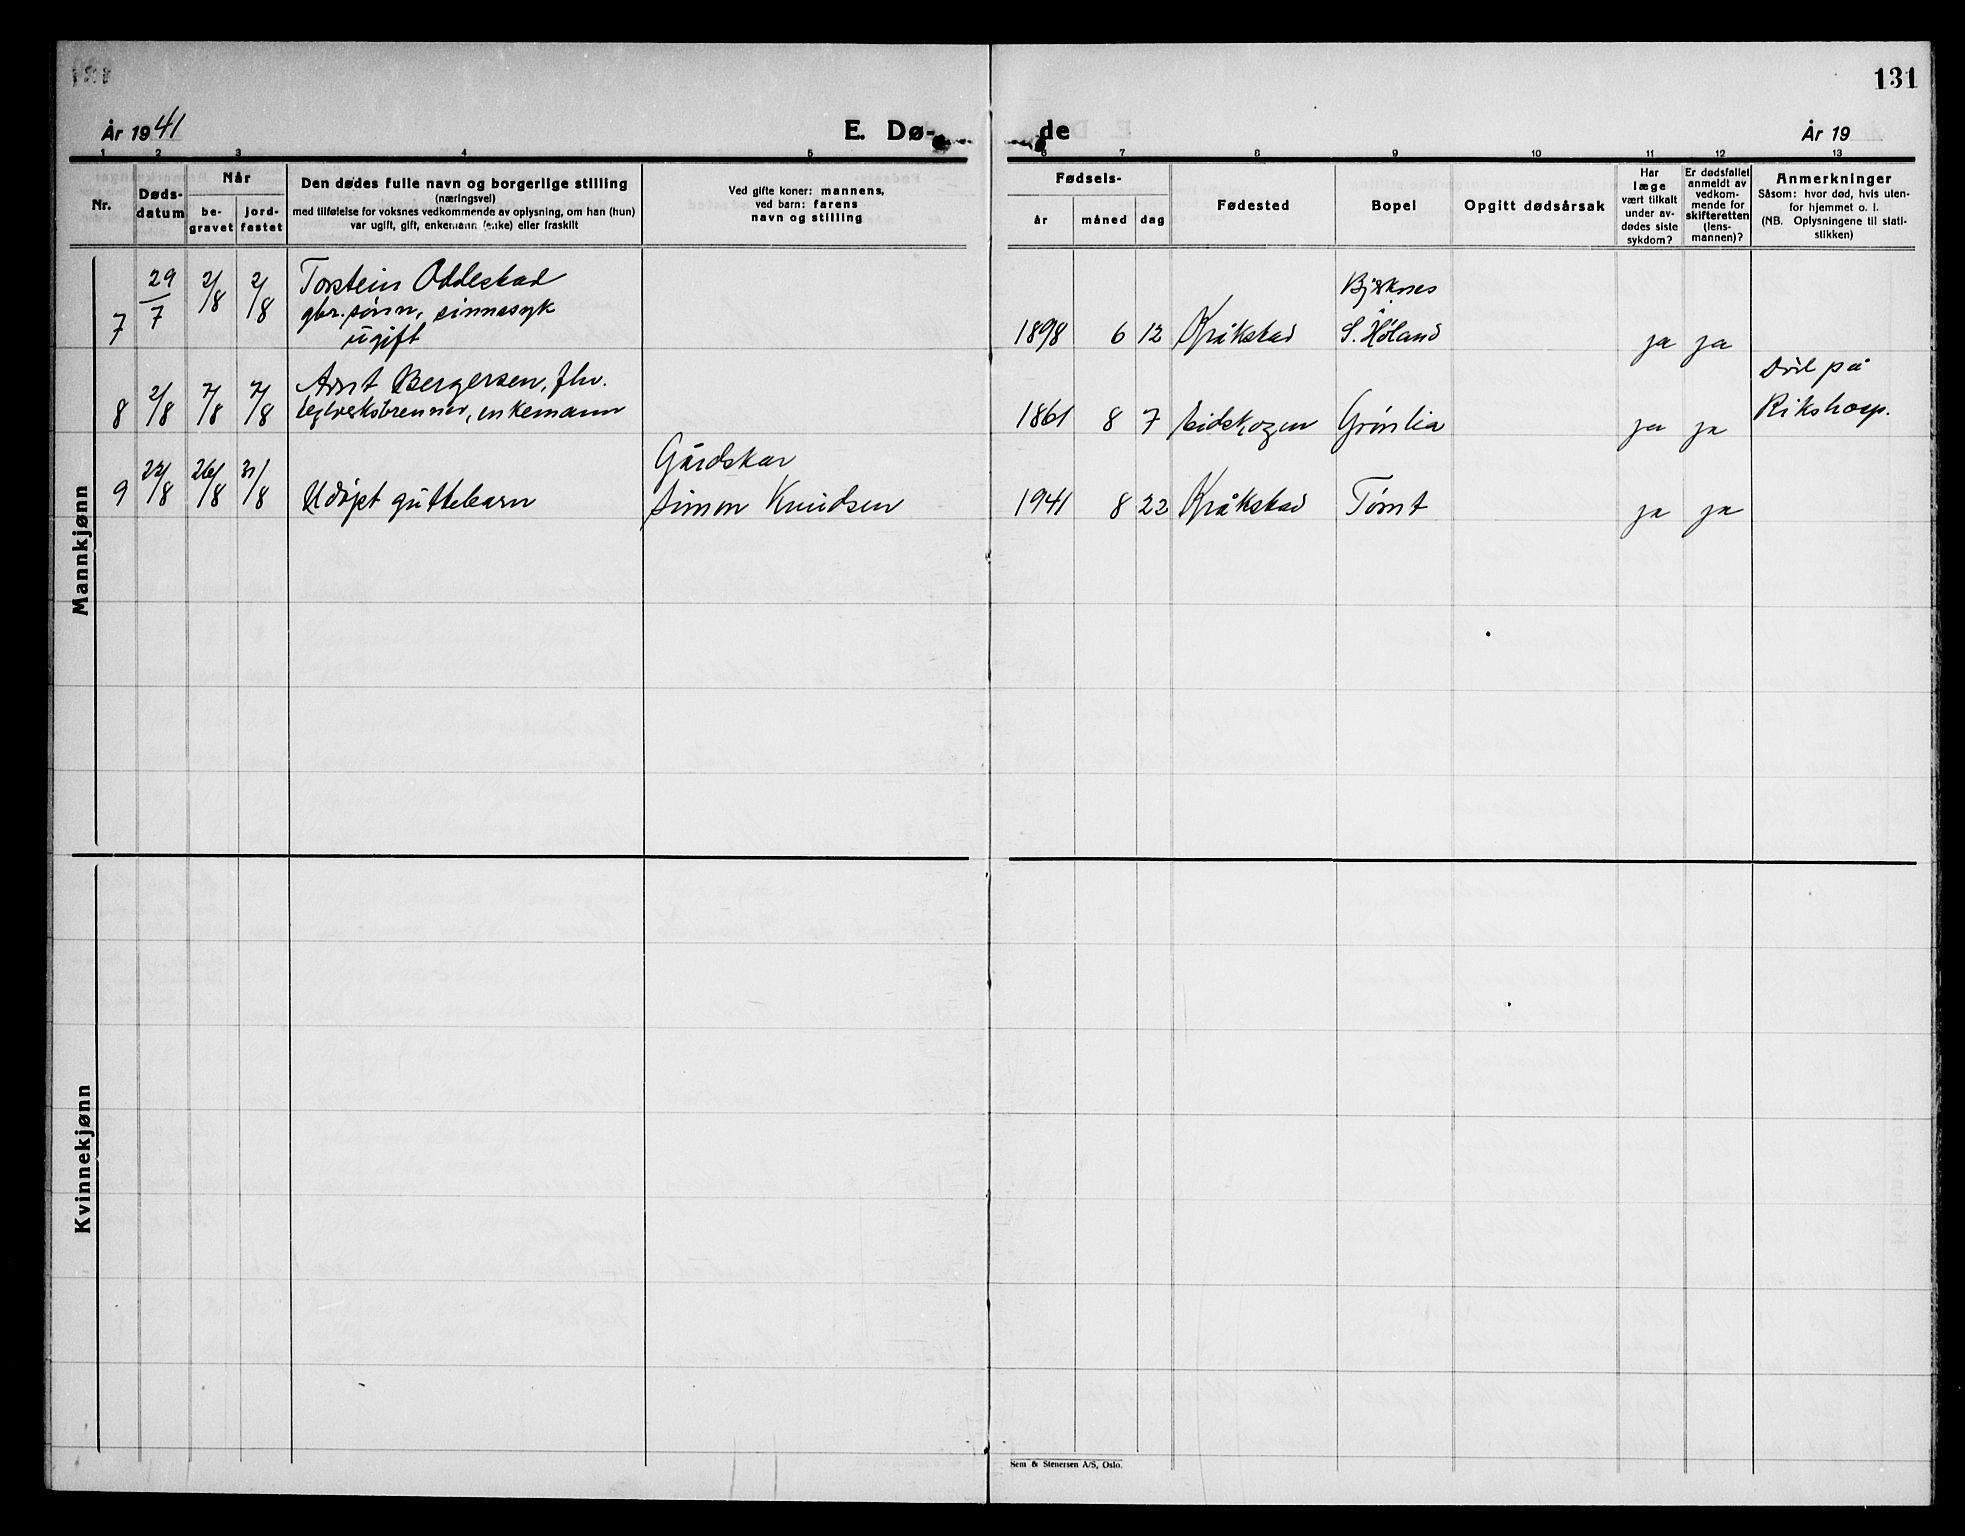 131
År 1941
E. Dø-
de
År 19
1 2 3 4 5 6 7 8 9 10 11 12 13
Nr.
Døds-
datum
Når
be-
gravet
jord-
festet
Den dødes fulle navn og borgerlige stilling
(næringsvei)
med tilføielse for voksnes vedkommende av oplysning, om han (hun)
var ugift, gift, enkemann (enke) eller fraskilt
Ved gifte koner: mannens,
ved barn: farens
navn og stilling
Fødsels-
år
måned
dag
Fødested
Bopel
Opgitt dødsårsak
Har
læge
vært tilkalt
under av-
dødes siste
sykdom?
Er dødsfallet
anmeldt av
vedkom-
mende for
skifteretten
(lens-
mannen)?
Anmerkninger
Såsom: hvor død, hvis uten-
for hjemmet o. l.
(NB. Oplysningene til stati-
stikken)
Mannkjønn
7 29/7 2/8 2/8 Torstein Oddestad
gbr.sønn, sinnssyk
ugift
1898 6 12 Kråkstad
Bjerknes
S. Høland
ja ja
8 2/8 7/8 7/8 Arnt Bergersen, fhv.
teglverksbrenner, enkemann
1861 8 7 Eidskogen Grønlia ja ja
Død på
Rikshosp.
9 22/8 26/8 31/8 Udøpt guttebarn
Gårdskar
Simon Knudsen
1941 8 22 Kråkstad Tomt ja ja
Kvinnekjønn
Sem & Stenersen A/S, Oslo.